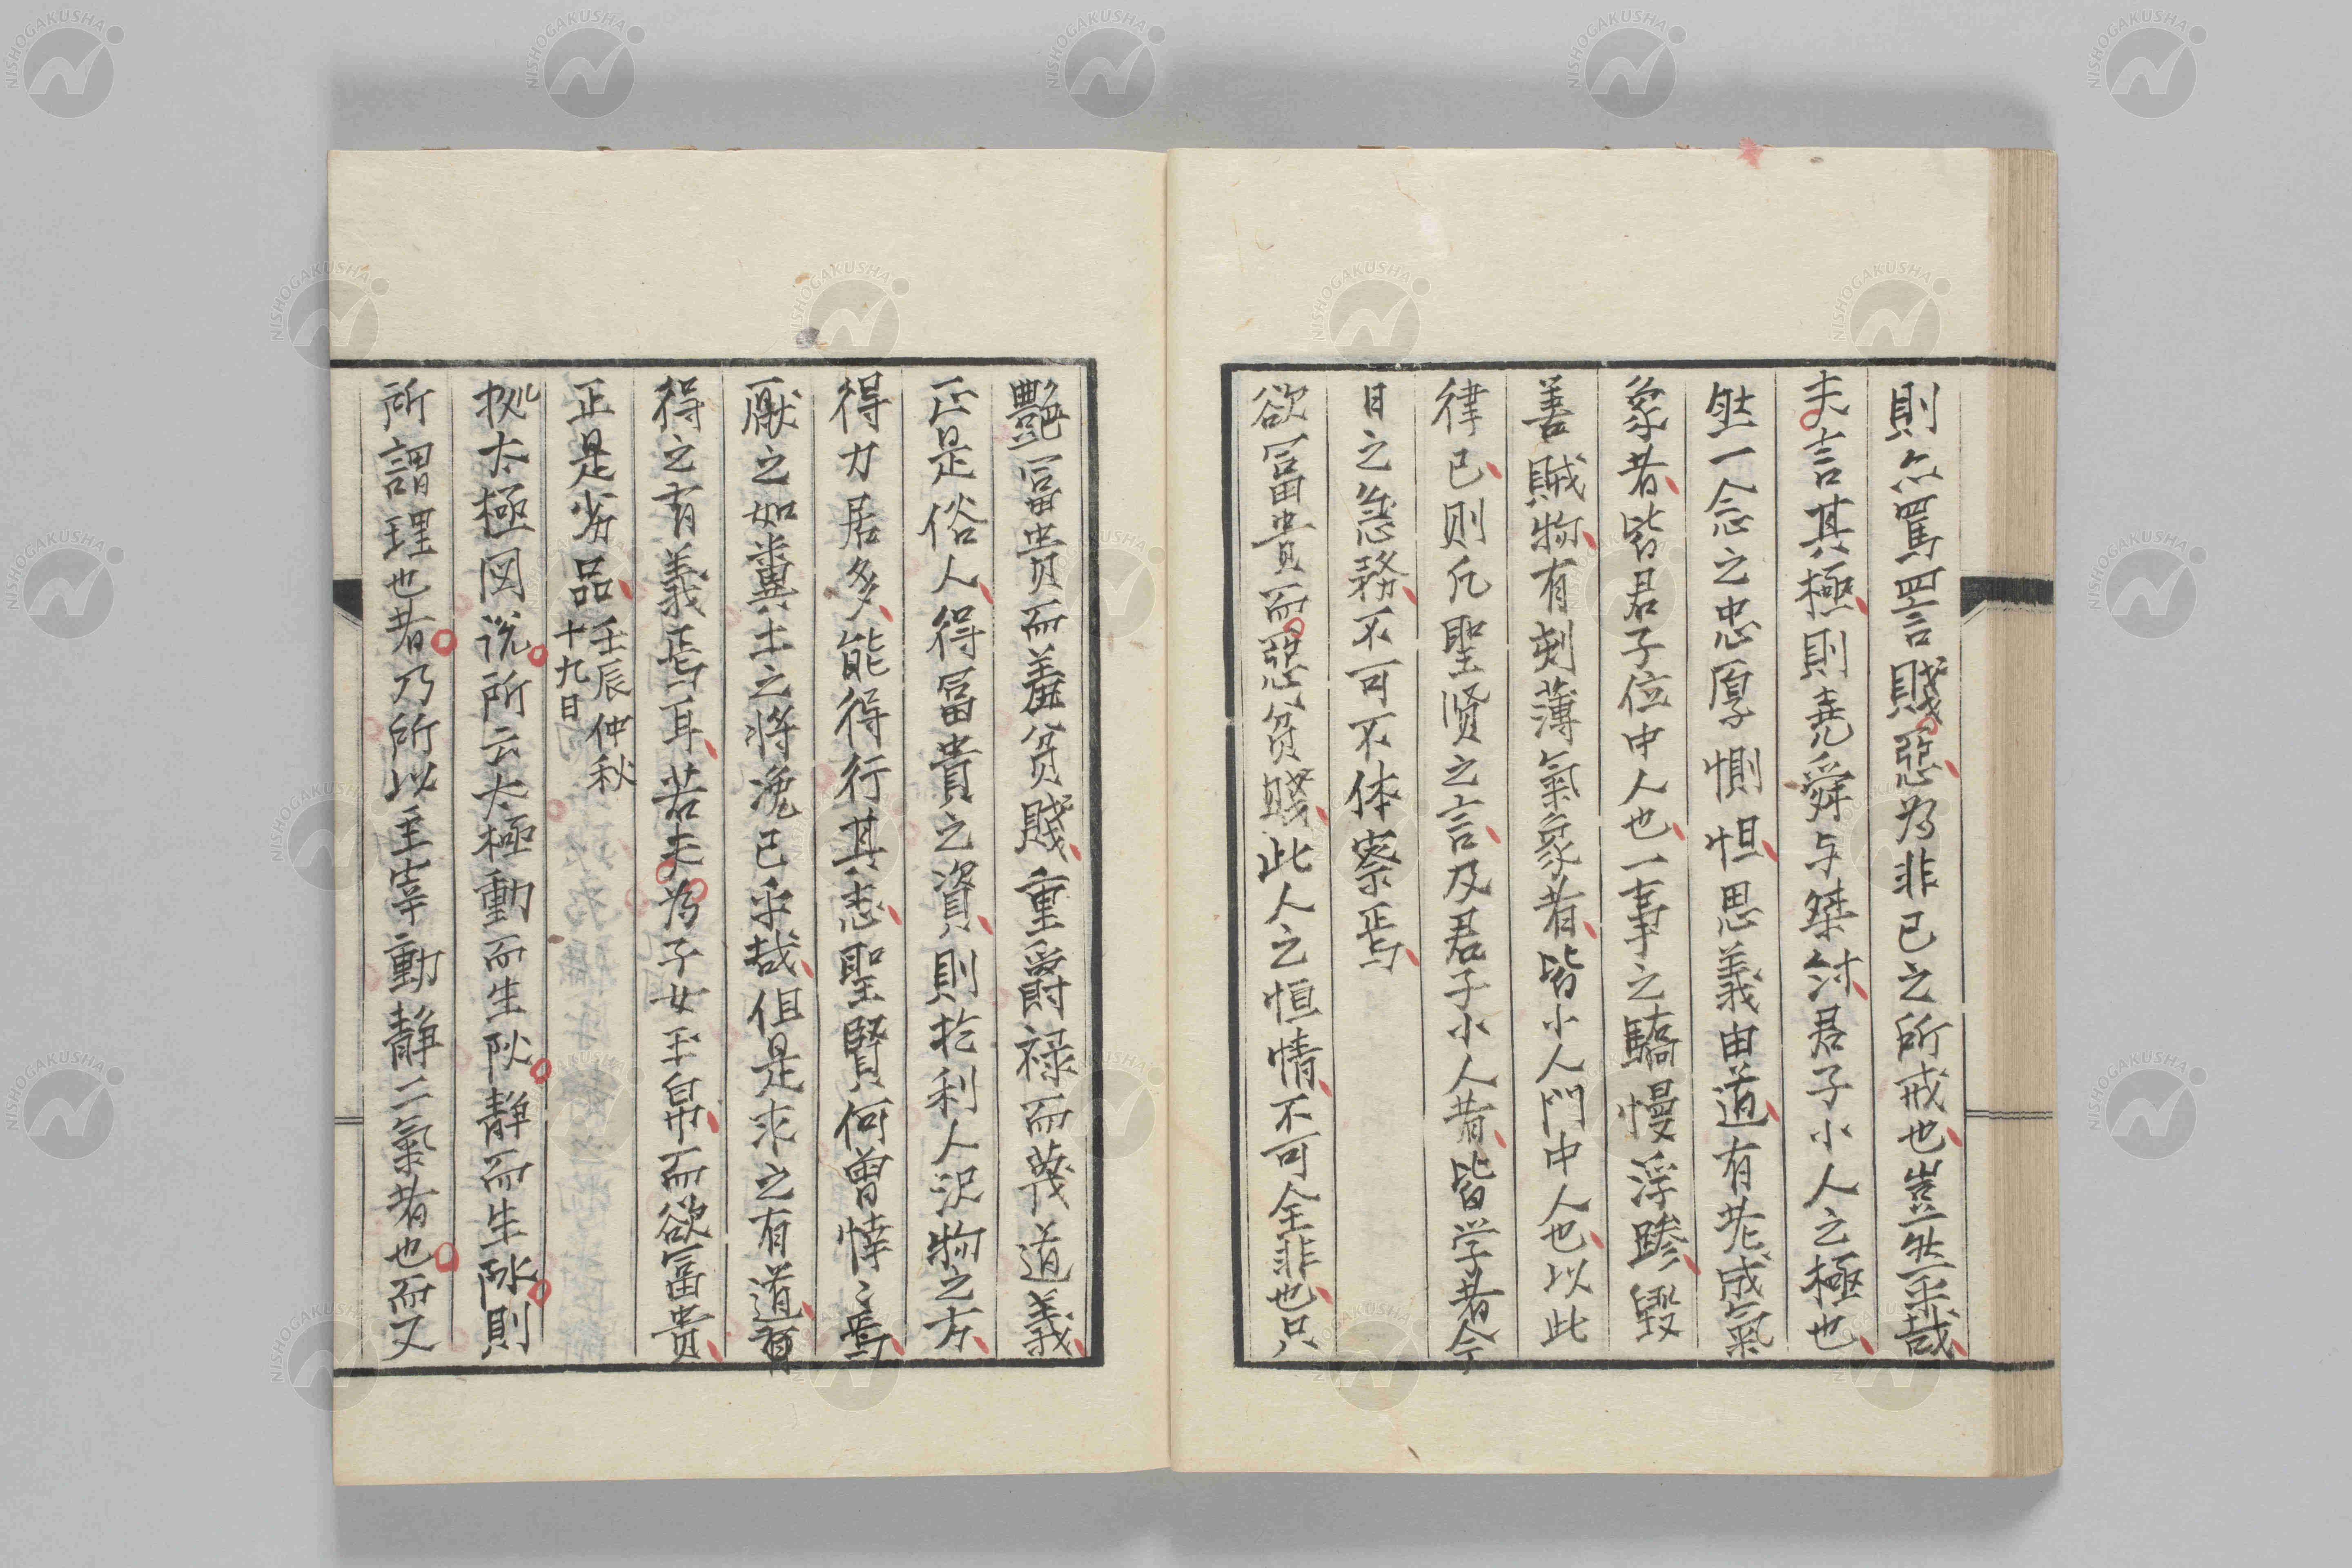 則亦罵詈言賤惡為非己之所戒也豈然乎哉
夫言其極則堯舜与桀紂君子小人之極也
然一念之忠厚惻怛思義由道有老成氣
象者皆君子位中人也一事之驕慢浮躁毀
善賊物有刻薄氣象者皆小人門中人也以此
律己則凡聖贤之言及君子小人者皆学者今
日之急務不可不体察焉
欲冨貴而惡貧賤此人之恒情不可全非也只
艷冨貴而羞貧賤重爵禄而蔑道義
正是俗人得冨貴之資則於利人沢物之方
得力居多能得行其志聖賢何曽悻〻焉
厭之如糞土之将浼己乎哉但是求之有道有
得之有義焉耳若夫為子女玉帛而欲冨貴
正是劣品壬辰仲秋
十九日
拠太極図说所云太極動而生阳静而生阴則
所謂理也者乃所以主宰動静二氣者也而又
NISHOGAKUSHA